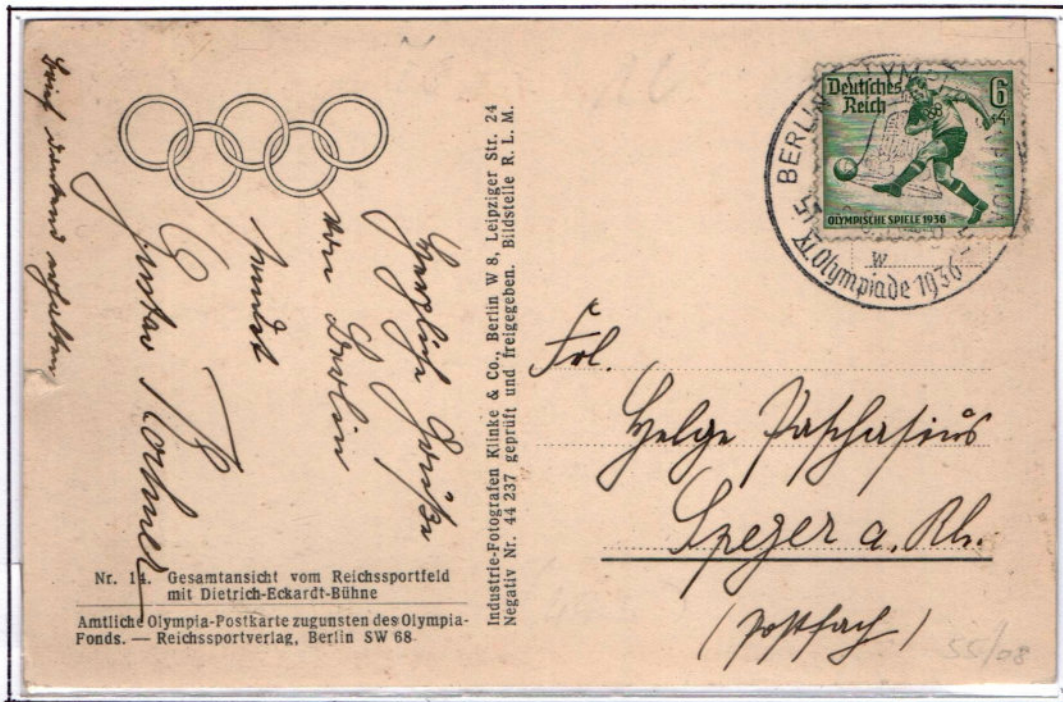 Herzliche Grüße
von Berlin
sendet
Gustav
Brief dankend erhalten
Nr. 14. Gesamtansicht vom Reichssportfeld
mit Dietrich-Eckardt-Bühne
Amtliche Olympia-Postkarte zugunsten des Olympia-
Fonds. — Reichssportverlag, Berlin SW 68
Industrie-Fotografen Klinke & Co., Berlin W 8, Leipziger Str. 24
Negativ Nr. 44 237 geprüft und freigegeben. Bildstelle R. L. M.
Deutsches
Reich
6
+4
OLYMPISCHE SPIELE 1936
BERLIN
XI. Olympiade 1936
w
Frl.
Helge Paschasius
Speyer a. Rh.
(Postfach)
55/08